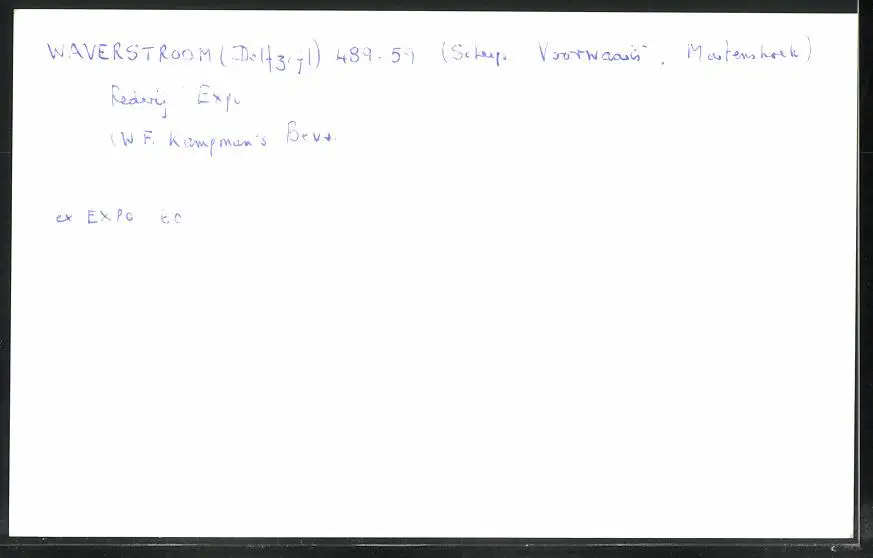 WAVERSTROOM (Delfzijl) 489-59 (Scheep. Voorwaarts, Martenshoek)
Rederij Expo
(W F. Kampman's Bevr.
ex EXPO 60